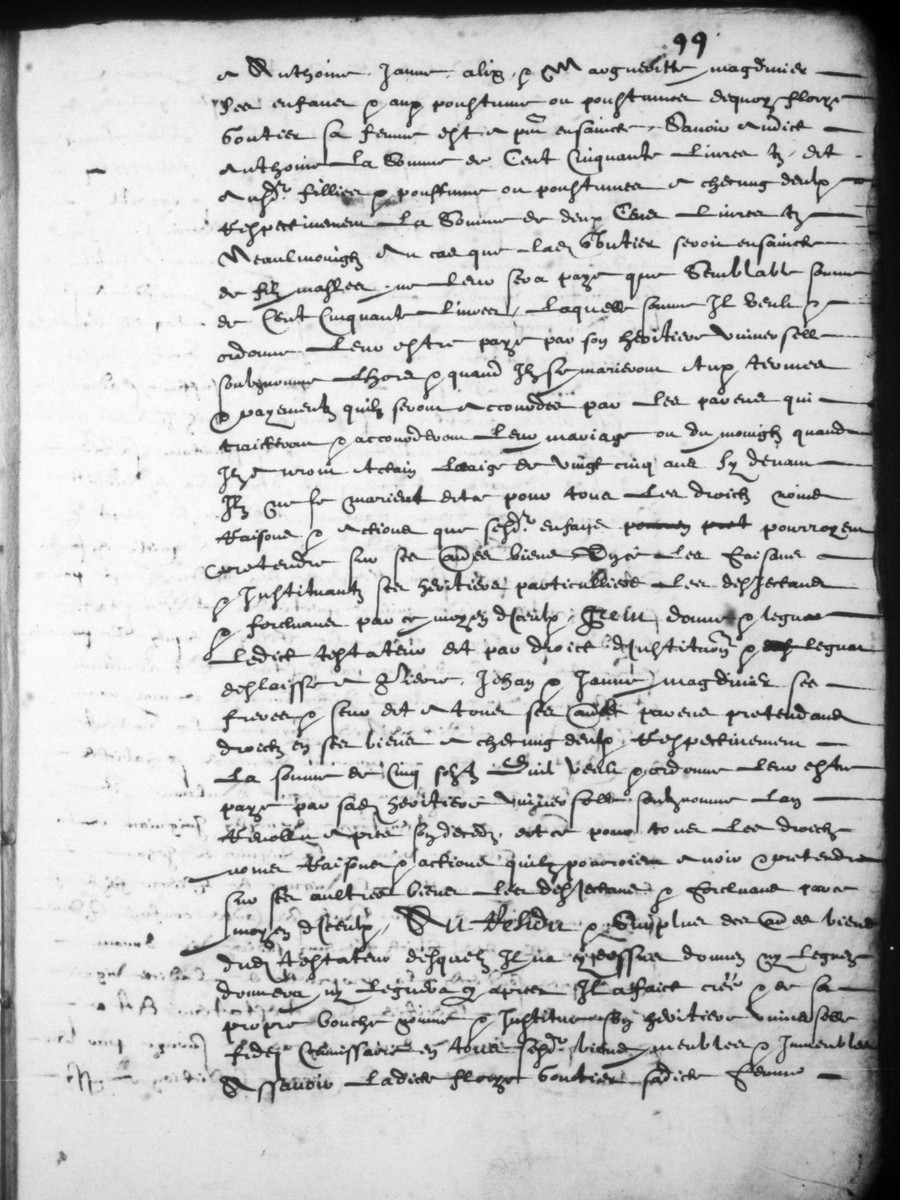 99
A Anthoine Janne alix & Margueritte magdinier
ses enfans & aux posthume ou posthumes dequoy florye
Goutier sa femme est a pnt ensaincte Savoir audict
Anthoine La Somme de Cent Cinquante Livres tz dit
Ausd filles & posthume ou posthumes A chescung deulx
Respectivement La Somme de deux Cens Livres tz
Neaulmoingz Au cas que lad Goutier seroit ensaincte
de filz masles ne leur sera paye que Semblable somme
de Cent Cinquante Livres Laquelle somme Il Veult &
ordonne Leur estre paye par son heritiere universelle
soubznommee Lhors & quand Ilz se marieront Aux termes
& payementz quilz seront Accourdes par Les parens qui
traicteront & accourderont Leur mariage ou du moingz quand
Ilz auront Actain Leaige de vingt cinq ans sy devant
Ilz ne se marient et ce pour tous Les droictz noms
Raisons & Actions que sesd enfans pourroyent
pretendre sur ses aultres biens Les Faisans
& Instituantz ses heritiers particulliers Les desJectans
& forcluans par ce moyen diceulx Item donne & legue
Ledict testateur et par droict dInstitution & legue
deslaisse A Pierre Jehan & Janne magdinier ses
freres & seur et A tous ses aultres parens pretendans
droictz en ses biens A chescung deulx Respectivement
La somme de Cinq solz Quil veult & ordonne Leur estre
paye par sad heritiere universelle soubznommee Lan
Revollu Apres son deces et ce pour tous Les droictz
noms Raisons & actions quilz pourroient Avoir & pretendre
sur ses aultres biens Les desJectans & forcluans par ce
moyen diceulx Au Residu & Surplus des aultres biens
dud testateur desquelz Il na cy dessus donne ny Legue
donnera ny Leguera cy apres Il a faict cree & de sa
propre bouche nomme & Institue son heritiere universelle
fidei Commissaire en tous sesd biens meubles & Immeubles
Assavoir Ladicte florye Goutier sadicte femme